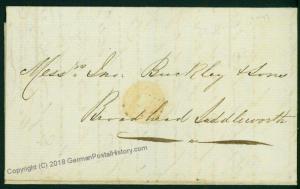 Messrs Jno. Buckley & Sons
Broadhead Saddleworth
Copyright © 2018 GermanPostalHistory.com